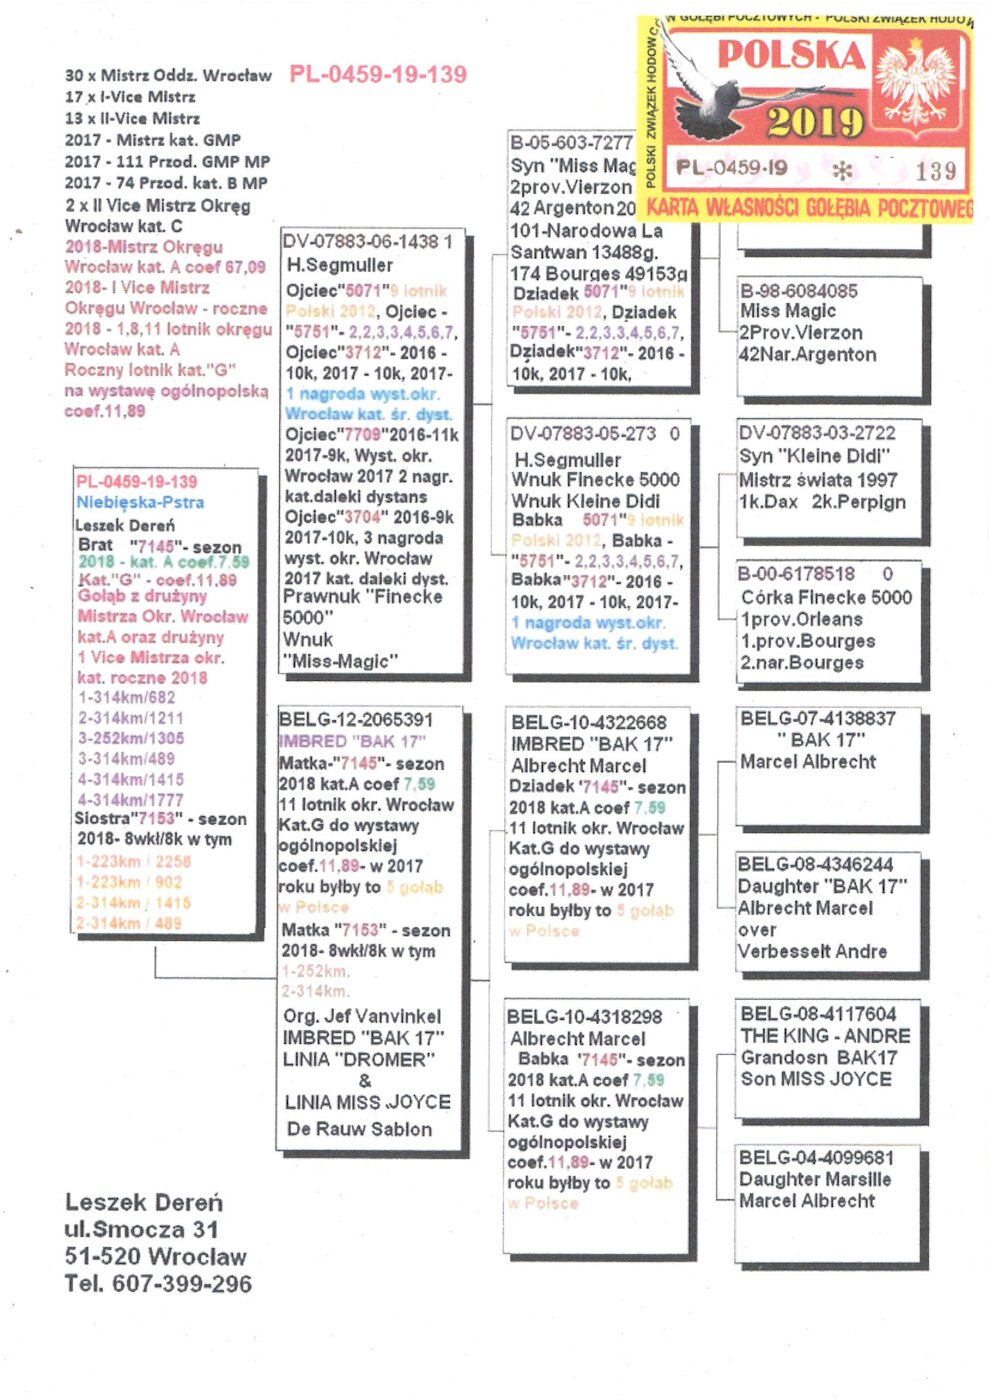 30 x Mistrz Oddz. Wrocław
17 x I-Vice Mistrz
13 x II-Vice Mistrz
2017 - Mistrz kat. GMP
2017 - 111 Przod. GMP MP
2017 - 74 Przod. kat. B MP
2 x II Vice Mistrz Okręg
Wrocław kat. C
2018-Mistrz Okręgu
Wrocław kat. A coef 67,09
2018- I Vice Mistrz
Okręgu Wrocław - roczne
2018 - 1,8,11 lotnik okręgu
Wrocław kat. A
Roczny lotnik kat."G"
na wystawę ogólnopolską
coef.11,89
PL-0459-19-139
POLSKI ZWIĄZEK HODOWC
W GOŁĘBI POCZTOWYCH - POLSKI ZWIĄZEK HODOW
POLSKA
2019
PL-0459-19 * 139
KARTA WŁASNOŚCI GOŁĘBIA POCZTOWEG
PL-0459-19-139
Niebięska-Pstra
Leszek Dereń
Brat "7145"- sezon
2018 - kat. A coef.7,59
Kat."G" - coef.11,89
Gołąb z drużyny
Mistrza Okr. Wrocław
kat.A oraz drużyny
1 Vice Mistrza okr.
kat. roczne 2018
1-314km/682
2-314km/1211
3-252km/1305
3-314km/489
4-314km/1415
4-314km/1777
Siostra"7153" - sezon
2018- 8wkł/8k w tym
1-223km / 2258
1-223km / 902
2-314km / 1415
2-314km / 489
DV-07883-06-1438 1
H.Segmuller
Ojciec"5071"9 lotnik
Polski 2012, Ojciec -
"5751"- 2,2,3,3,4,5,6,7,
Ojciec"3712"- 2016 -
10k, 2017 - 10k, 2017-
1 nagroda wyst.okr.
Wrocław kat. śr. dyst.
Ojciec"7709"2016-11k
2017-9k, Wyst. okr.
Wrocław 2017 2 nagr.
kat.daleki dystans
Ojciec"3704" 2016-9k
2017-10k, 3 nagroda
wyst. okr. Wrocław
2017 kat. daleki dyst.
Prawnuk "Finecke
5000"
Wnuk
"Miss-Magic"
BELG-12-2065391
IMBRED "BAK 17"
Matka-"7145"- sezon
2018 kat.A coef 7,59
11 lotnik okr. Wrocław
Kat.G do wystawy
ogólnopolskiej
coef.11,89- w 2017
roku byłby to 5 gołąb
w Polsce
Matka "7153" - sezon
2018- 8wkł/8k w tym
1-252km.
2-314km.
Org. Jef Vanvinkel
IMBRED "BAK 17"
LINIA "DROMER"
&
LINIA MISS JOYCE
De Rauw Sablon
B-05-603-7277
Syn "Miss Mag
2prov.Vierzon
42 Argenton20
101-Narodowa La
Santwan 13488g.
174 Bourges 49153g
Dziadek 5071"9 lotnik
Polski 2012, Dziadek
"5751"- 2,2,3,3,4,5,6,7,
Dziadek"3712"- 2016 -
10k, 2017 - 10k,
DV-07883-05-273 0
H.Segmuller
Wnuk FInecke 5000
Wnuk Kleine Didi
Babka 5071"9 lotnik
Polski 2012, Babka -
"5751"- 2,2,3,3,4,5,6,7,
Babka"3712"- 2016 -
10k, 2017 - 10k, 2017-
1 nagroda wyst.okr.
Wrocław kat. śr. dyst.
BELG-10-4322668
IMBRED "BAK 17"
Albrecht Marcel
Dziadek '7145"- sezon
2018 kat.A coef 7,59
11 lotnik okr. Wrocław
Kat.G do wystawy
ogólnopolskiej
coef.11,89- w 2017
roku byłby to 5 gołąb
w Polsce
BELG-10-4318298
Albrecht Marcel
Babka '7145"- sezon
2018 kat.A coef 7,59
11 lotnik okr. Wrocław
Kat.G do wystawy
ogólnopolskiej
coef.11,89- w 2017
roku byłby to 5 gołąb
w Polsce
B-98-6084085
Miss Magic
2Prov.Vierzon
42Nar.Argenton
DV-07883-03-2722
Syn "Kleine Didi"
Mistrz świata 1997
1k.Dax 2k.Perpign
B-00-6178518 0
Córka FInecke 5000
1prov.Orleans
1.prov.Bourges
2.nar.Bourges
BELG-07-4138837
" BAK 17"
Marcel Albrecht
BELG-08-4346244
Daughter "BAK 17"
Albrecht Marcel
over
Verbesselt Andre
BELG-08-4117604
THE KING - ANDRE
Grandosn BAK17
Son MISS JOYCE
BELG-04-4099681
Daughter Marsille
Marcel Albrecht
Leszek Dereń
ul.Smocza 31
51-520 Wrocław
Tel. 607-399-296